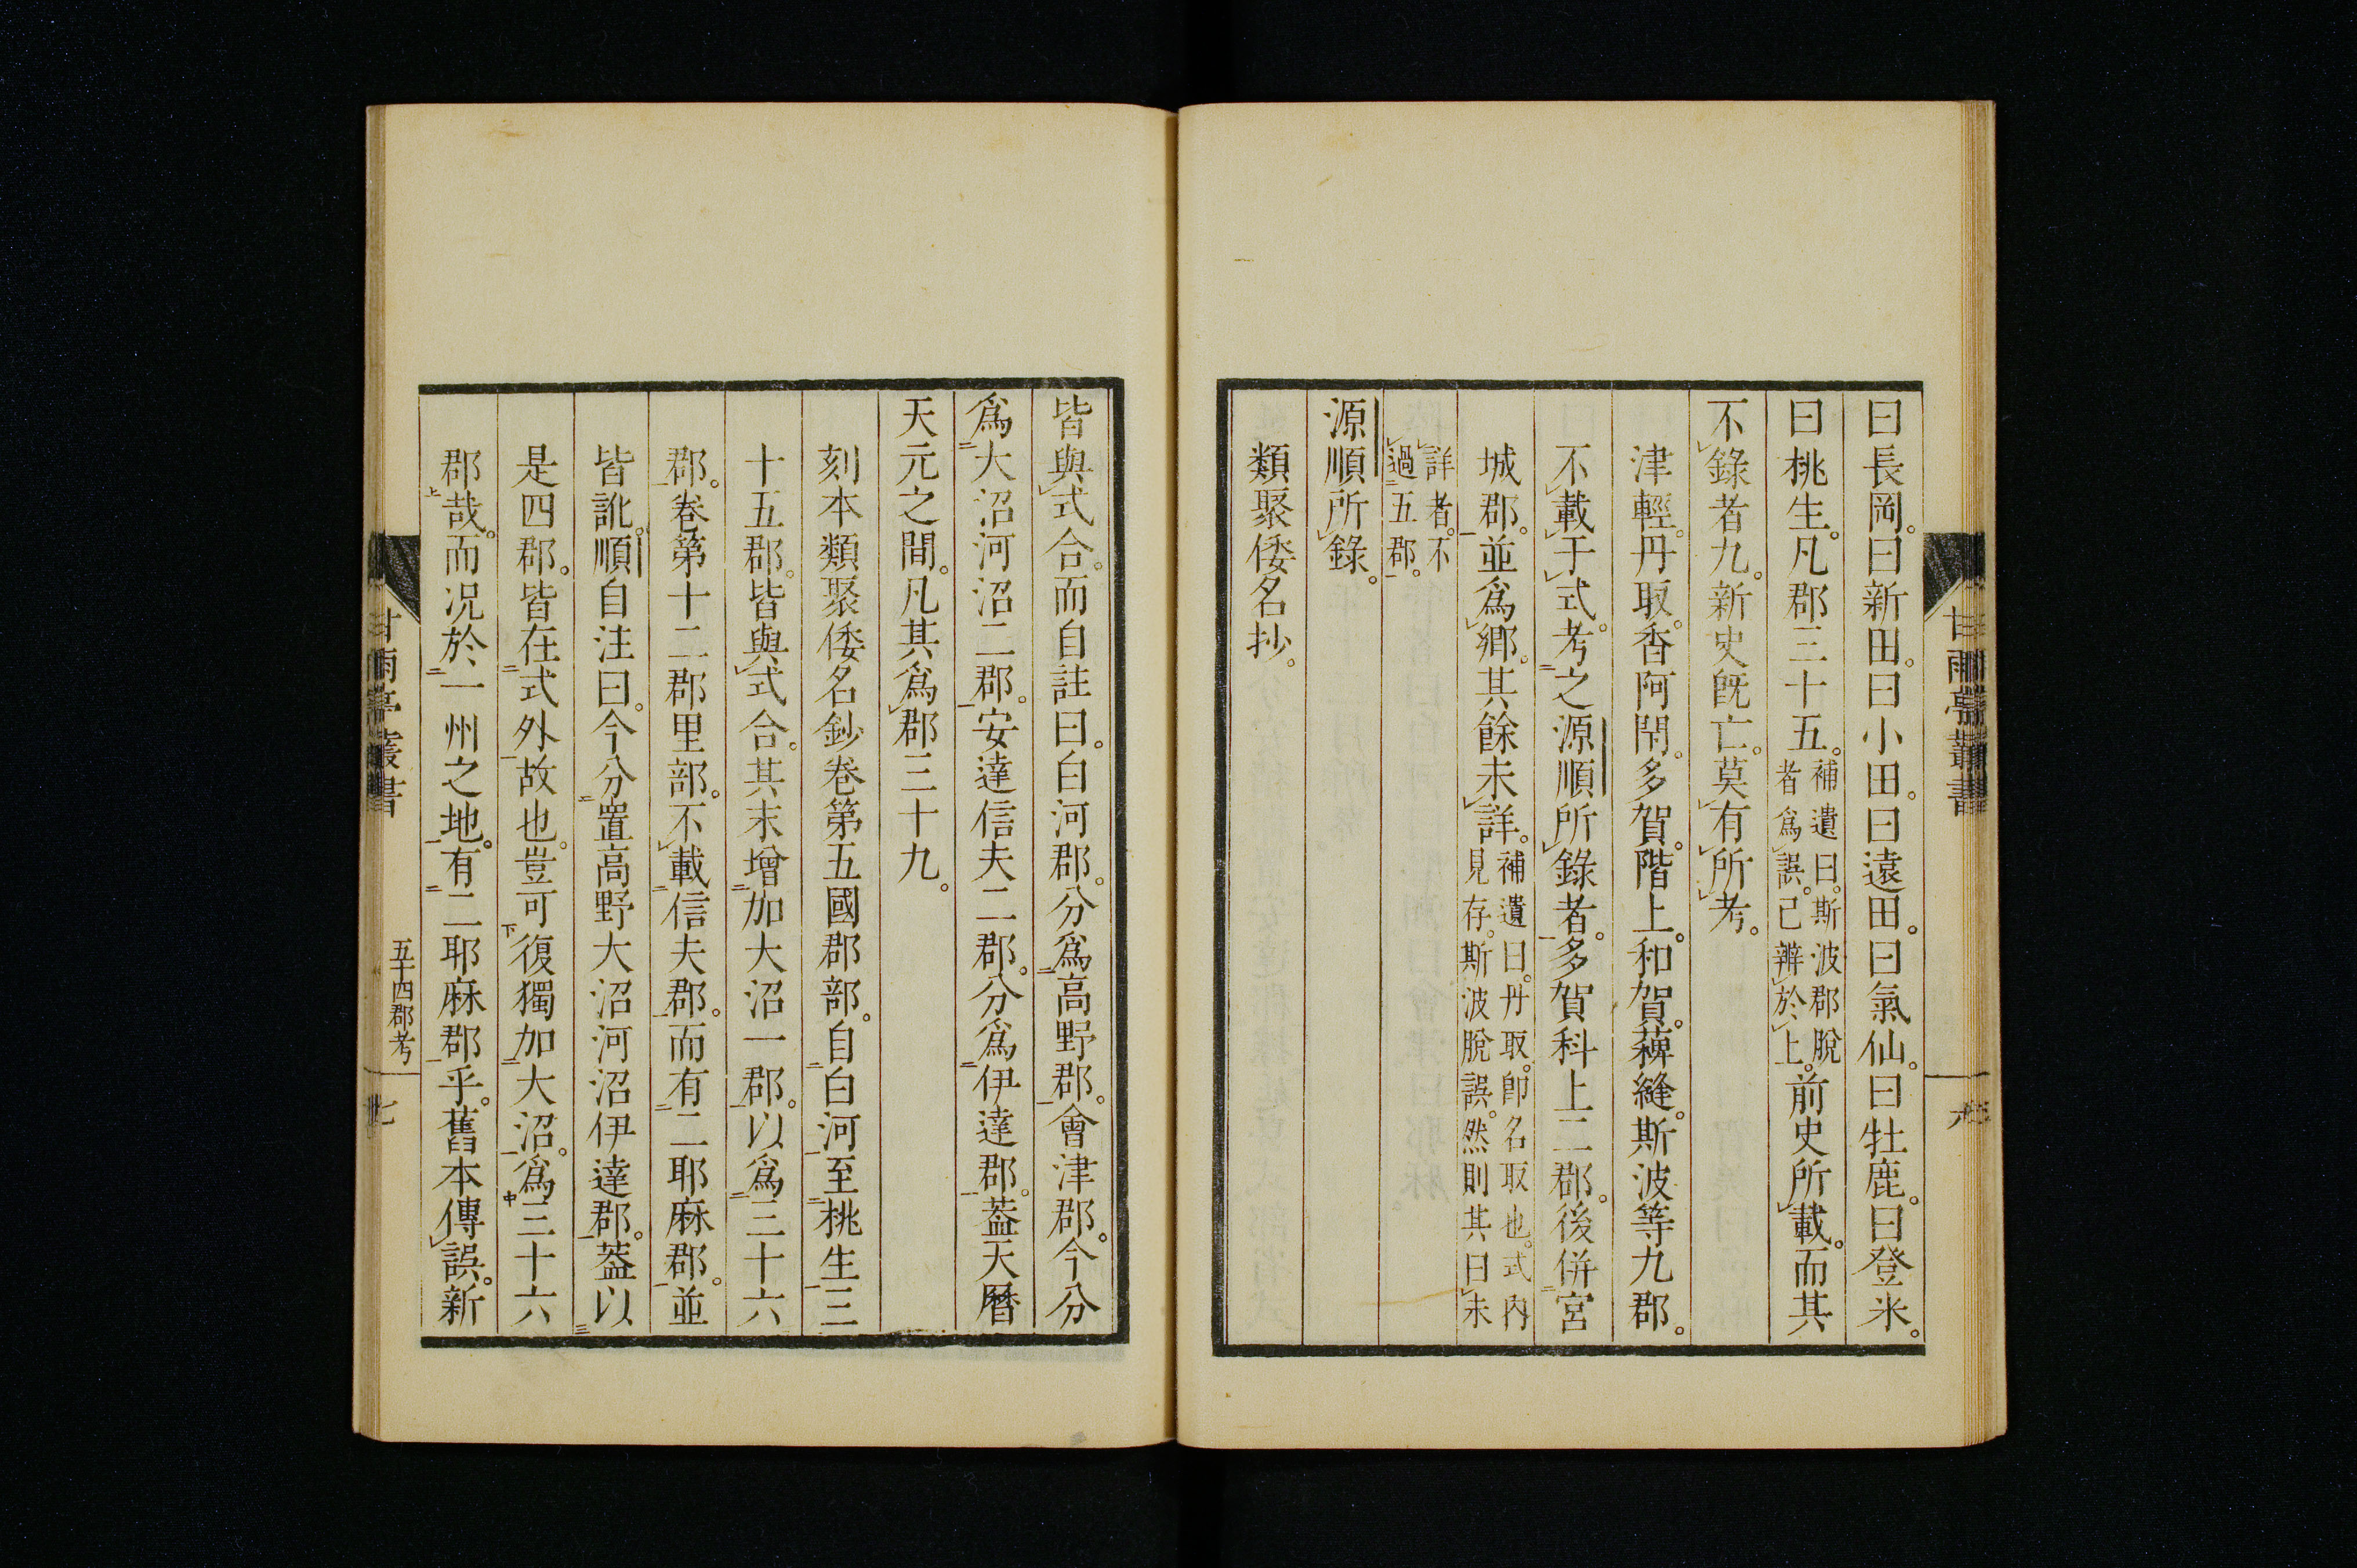 曰長岡。曰新田。曰小田。曰遠田。曰氣仙。曰牡鹿。曰登米。
曰桃生。凡郡三十五。補遺曰。斯波郡脫者爲誤。已辨於上。前史所載。而其
不錄者九。新史旣亡。莫有所考。
津輕。丹取。香阿閇。多賀。階上。和賀。薭縫。斯波等九郡。
不載于式。考之源順所錄者。多賀科上二郡。後併宮
城郡。並爲鄉。其餘未詳。補遺曰。丹取。卽名取也。式內見存。斯波脫誤。然則其曰未
詳者。不過五郡。
源順所錄。
類聚倭名抄。
皆與式合。而自註曰。白河郡。分爲高野郡。會津郡。今分
爲大沼河沼二郡。安達信夫二郡。分爲伊達郡。蓋天曆
天元之間。凡其爲郡三十九。
刻本類聚倭名鈔卷第五國郡部。自白河至桃生三
十五郡。皆與式合。其末增加大沼一郡。以爲三十六
郡。卷第十二郡里部。不載信夫郡。而有二耶麻郡。並
皆訛。順自注曰。今分置高野大沼河沼伊達郡。蓋以
是四郡。皆在式外故也。豈可復獨加大沼。爲三十六
郡哉。而況於一州之地。有二耶麻郡乎。舊本傳誤。新
甘雨亭叢書
六
甘雨亭叢書
五十四郡考
七